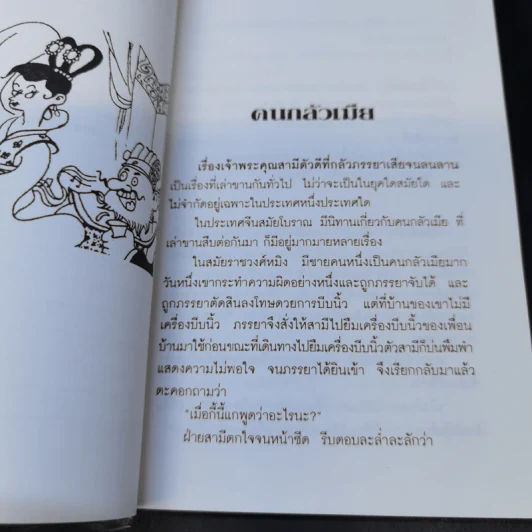 คนกลัวเมีย
เรื่องเจ้าพระคุณสามีตัวดีที่กลัวภรรยาเสียจนลนลาน
เป็นเรื่องที่เล่าขานกันทั่วไป ไม่ว่าจะเป็นในยุคใดสมัยใด และ
ไม่จำกัดอยู่เฉพาะในประเทศหนึ่งประเทศใด
ในประเทศจีนสมัยโบราณ มีนิทานเกี่ยวกับคนกลัวเมีย ที่
เล่าขานสืบต่อกันมา ก็มีอยู่มากมายหลายเรื่อง
ในสมัยราชวงศ์หมิง มีชายคนหนึ่งเป็นคนกลัวเมียมาก
วันหนึ่งเขากระทำความผิดอย่างหนึ่งและถูกภรรยาจับได้ และ
ถูกภรรยาตัดสินลงโทษด้วยการบีบนิ้ว แต่ที่บ้านของเขาไม่มี
เครื่องบีบนิ้ว ภรรยาจึงสั่งให้สามีไปยืมเครื่องบีบนิ้วของเพื่อน
บ้านมาใช้ก่อนขณะที่เดินทางไปยืมเครื่องบีบนิ้วตัวสามีก็บ่นพึมพำ
แสดงความไม่พอใจ จนภรรยาได้ยินเข้า จึงเรียกกลับมาแล้ว
ตะคอกถามว่า
"เมื่อกี้นี้แกพูดว่าอะไรนะ?"
ฝ่ายสามีตกใจจนหน้าซีด รีบตอบละล่ำละลักว่า